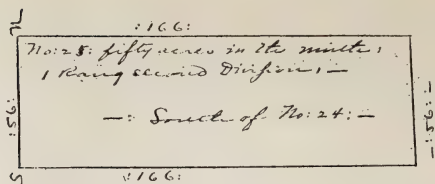 N
:166:
No: 25: fifty acres in the
1 Rang second Division; —
:56:
—: South of No: 24: —
—:56:—
S
:166: